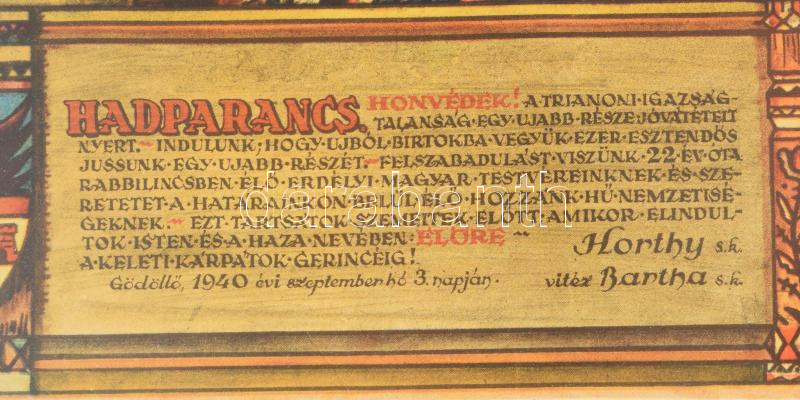 HADPARANCS. HONVÉDEK! A TRIANONI IGAZSÁG-
TALANSÁG EGY UJABB RÉSZE JÓVÁTÉTELT
NYERT.~ INDULUNK, HOGY UJBÓL BIRTOKBA VEGYÜK EZER ESZTENDŐS
JUSSUNK EGY UJABB RÉSZÉT.~ FELSZABADULÁST VISZÜNK 22 ÉV ÓTA
RABBILINCSBEN ÉLŐ ERDÉLYI MAGYAR TESTVÉREINKNEK ÉS SZE-
RETETET A HATÁRAINKON BELÜL ÉLŐ HOZZÁNK HŰ NEMZETISÉ-
GEKNEK.~ EZT TARTSÁTOK SZEMETTEK ELŐTT AMIKOR ELINDUL-
TOK ISTEN ÉS A HAZA NEVÉBEN ELŐRE ~
A KELETI KÁRPÁTOK GERINCÉIG!
Horthy s.k.
Gödöllő, 1940 évi szeptember hó 3. napján.
vitéz Bartha s.k.
darabanth